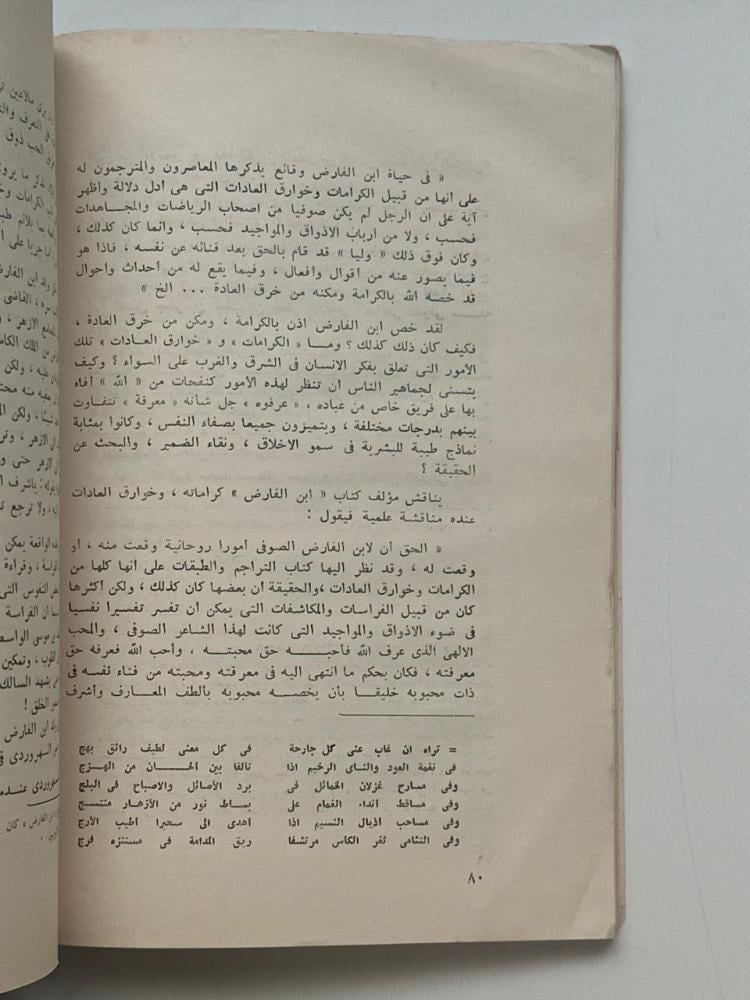 « فى حياة ابن الفارض وقائع يذكرها المعاصرون والمترجمون له
على أنها من قبيل الكرامات وخوارق العادات التى هى أدل دلالة وأظهر
آية على أن الرجل لم يكن صوفيا من أصحاب الرياضات والمجـاهدات
فحسب ، ولا من أرباب الأذواق والمواجيد فحسب ، وانما كان كذلك ،
وكان فوق ذلك « وليا » قد قام بالحق بعد فنائه عن نفسه ، فاذا هو
فيما يصور عنه من أقوال وأفعال ، وفيما يقع له من أحداث وأحوال
قد خصه الله بالكرامة ومكنه من خرق العادة ... الخ »
لقد خص ابن الفارض اذن بالكرامة ، ومكن من خرق العادة ،
فكيف كان ذلك كذلك ؟ ومـا « الكرامات » و « خوارق العـادات » تلك
الأمور التى تعلق بفكر الانسان فى الشرق والغرب على السواء ؟ وكيف
يتسنى لجماهير الناس أن تنظر لهذه الأمور كنفحات من « الله » أفاء
بها على فريق خاص من عباده ، « عرفوه » جل شأنه « معرفة » تتفاوت
بينهم بدرجات مختلفة ، ويتميزون جميعا بصفاء النفس ، وكانوا بمثابة
نماذج طيبة للبشرية فى سمو الاخلاق ، ونقاء الضمير ، والبحث عن
الحقيقة ؟
يناقش مؤلف كتاب « ابن الفارض » كراماته ، وخوارق العادات
عنده مناقشة علمية فيقول :
« الحق أن لابن الفارض الصوفى أمورا روحانية وقعت منه ، أو
وقعت له ، وقد نظر اليها كتاب التراجم والطبقات على أنها كلها من
الكرامات وخوارق العادات، والحقيقة أن بعضها كان كذلك ، ولكن أكثرها
كان من قبيل الفراسات والمكاشفات التى يمكن أن تفسر تفسيرا نفسيا
فى ضوء الأذواق والمواجيد التى كانت لهذا الشاعر الصوفى ، والمحب
الالهى الذى عرف الله فأحبـــه حق محبتـــه ، وأحب الله فعرفه حق
معرفته ، فكان بحكم ما انتهى اليه فى معرفته ومحبته من فناء نفسه فى
ذات محبوبه خليقا بأن يخصـه محبوبه بألطف المعـارف وأشرف
= تراه ان غاب عنى كل جارحة فى كل معنى لطيف رائق بهج
فى نغمة العود والناى الرخيم اذا تألفا بين ألحـــان من الهـزج
وفى مسارح غزلان الخمائل فى برد الأصائل والاصباح فى البلج
وفى مساقط أنداء الغمام على بسـاط نور من الأزهـار منتسـج
وفى مساحب أذيال النسيم اذا أهدى الى سحيرا أطيب الأرج
وفى التثامى ثغر الكاس مرتشفا ريق المدامة فى مستنزه فرج
٨٠